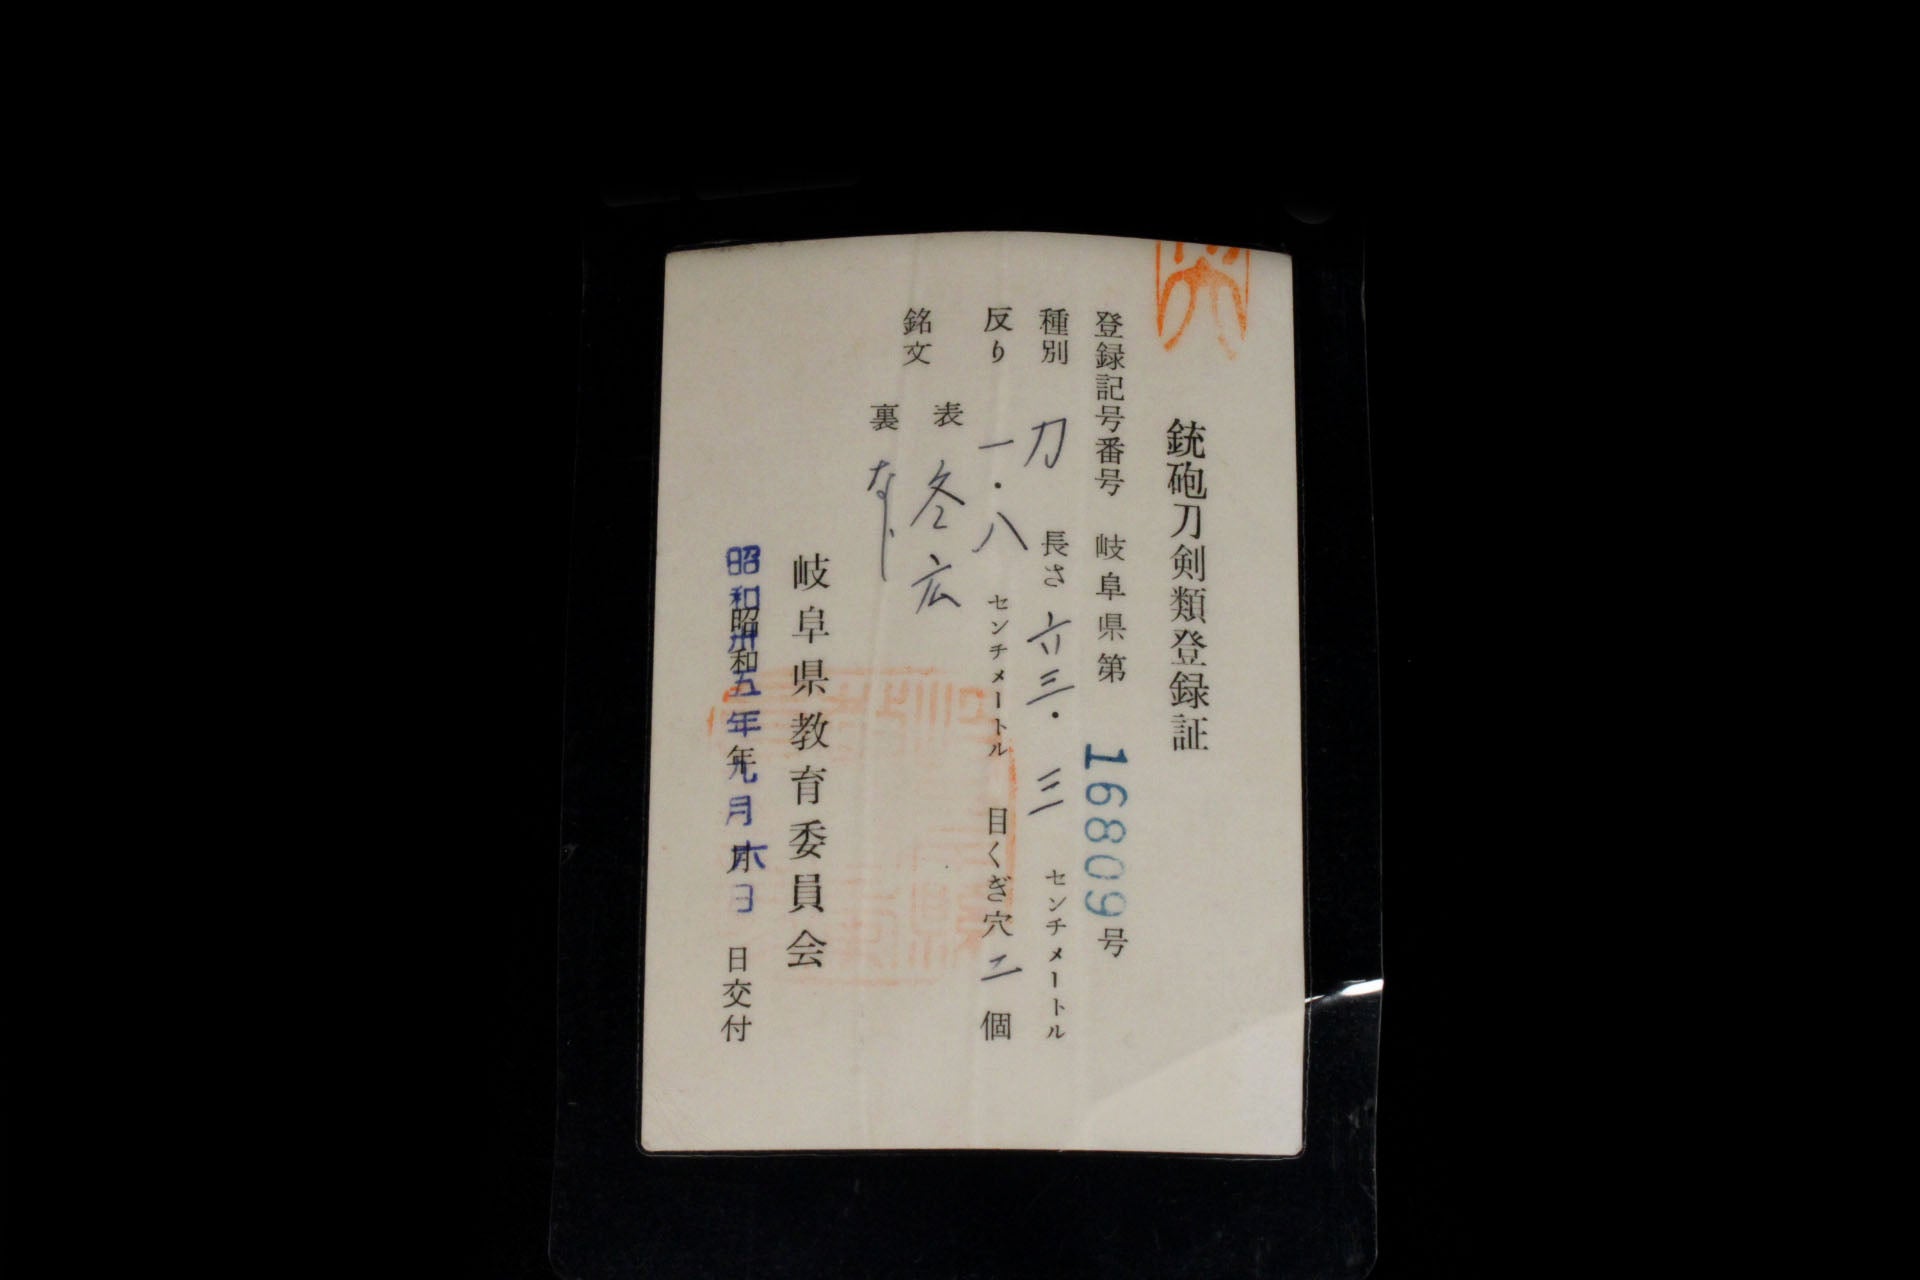 銃砲刀剣類登録証
登録記号番号 岐阜県第 16809 号
種別 刀 長さ 六三・三 センチメートル
反り 一・八 センチメートル 目くぎ穴 二 個
銘文 表 冬広
裏 なし
岐阜県教育委員会
昭和卅五年九月六日
昭和 年 月 日交付